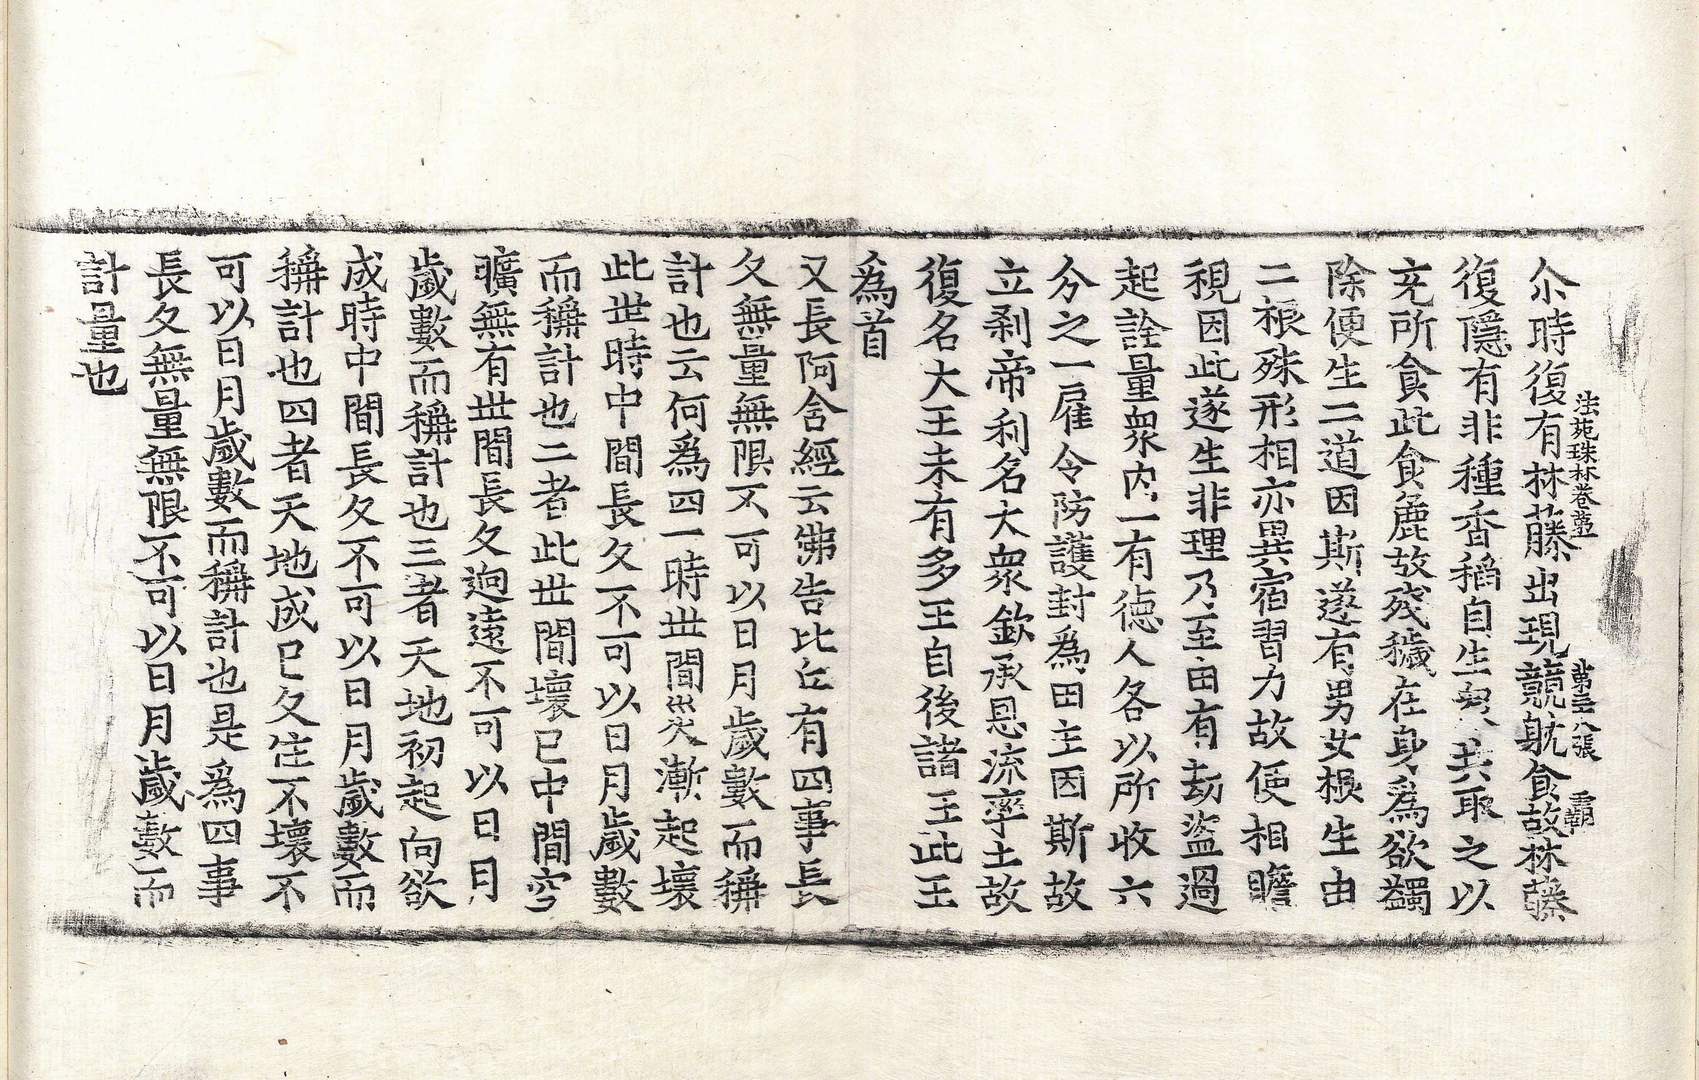 法苑珠林卷苐一　苐三八張　覇
尒時復有林藤出現競躭食故林藤
復隱有非種香稻自生衆共取之以
充所食此食麁故殘穢在身爲欲蠲
除便生二道因斯遂有男女根生由
二根殊形相亦異宿習力故便相瞻
視因此遂生非理乃至由有劫盜過
起詮量衆內一有德人各以所收六
分之一雇令防護封爲田主因斯故
立刹帝利名大衆欽承恩流率土故
復名大王未有多王自後諸王此王
爲首
又長阿含經云佛告比丘有四事長
久無量無限不可以日月歲數而稱
計也云何爲四一時世間灾漸起壞
此世時中間長久不可以日月歲數
而稱計也二者此世間壞已中間空
曠無有世間長久逈遠不可以日月
歲數而稱計也三者天地初起向欲
成時中間長久不可以日月歲數而
稱計也四者天地成已久住不壞不
可以日月歲數而稱計也是爲四事
長久無量無限不可以日月歲數而
計量也